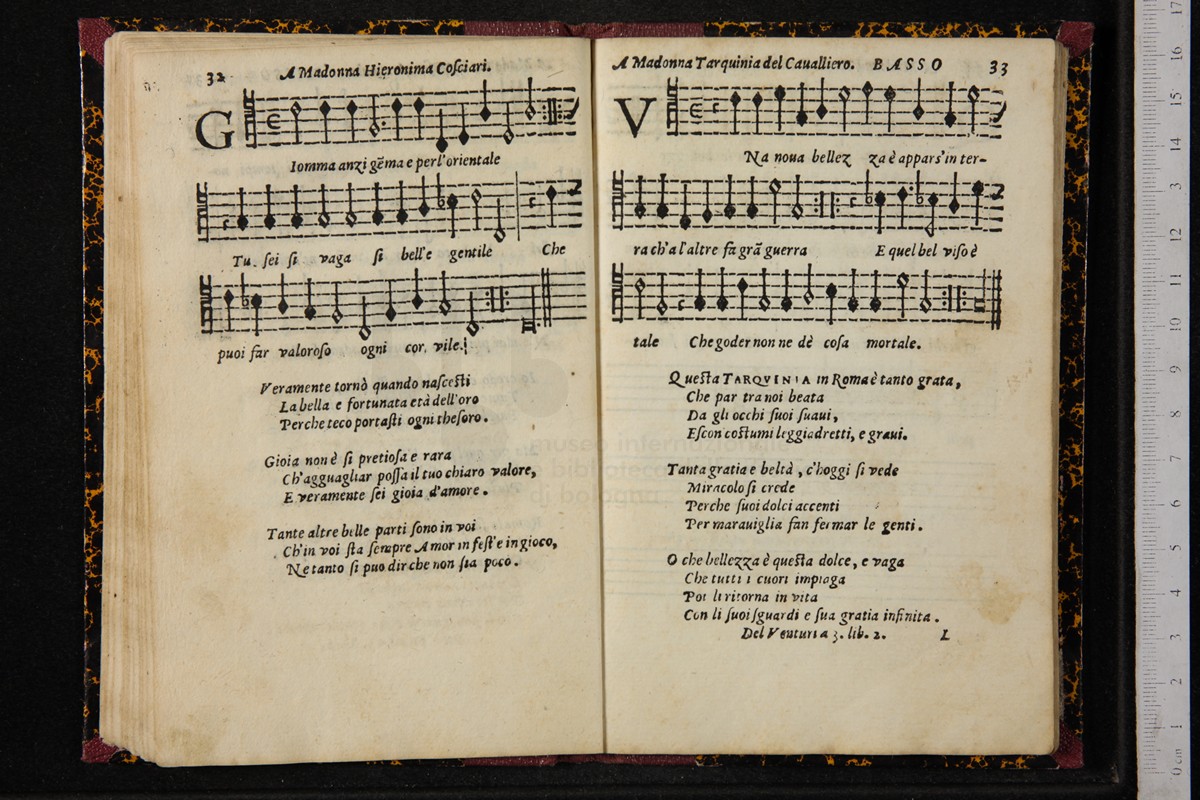 32 A Madonna Hieronima Cosciari.
G
Iomma anzi gẽma e perl'orientale
Tu sei si vaga si bell'e gentile Che
puoi far valoroso ogni cor, vile.
Veramente tornò quando nascesti
La bella e fortunata età dell'oro
Perche teco portasti ogni thesoro.
Gioia non è si pretiosa e rara
Ch'agguagliar possa il tuo chiaro valore,
E veramente sei gioia d'amore.
Tante altre belle parti sono in voi
Ch'in voi sta sempre Amor in fest'e in gioco,
Ne tanto si puo dir che non sia poco.
A Madonna Tarquinia del Caualliero. BASSO 33
V
Na noua bellez za è appars'in ter-
ra ch'a l'altre fa grã guerra E quel bel viso è
tale Che goder non ne dè cosa mortale.
Questa TARQVINIA in Roma è tanto grata,
Che par tra noi beata
Da gli occhi suoi suaui,
Escon costumi leggiadretti, e graui.
Tanta gratia e beltà, c'hoggi si vede
Miracolo si crede
Perche suoi dolci accenti
Per marauiglia fan fermar le genti.
O che bellezza è questa dolce, e vaga
Che tutti i cuori impiaga
Poi li ritorna in vita
Con li suoi sguardi e sua gratia infinita.
Del Ventura 3. lib. 2. L
museo internazionale
e biblioteca della musica
di bologna
0 cm 1 2 3 4 5 6 7 8 9 10 11 12 13 14 15 16 17